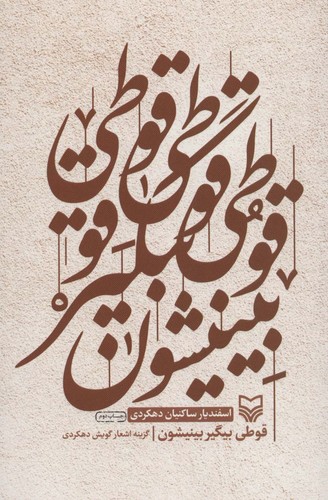 قوطی
قوطی
قوطی
بیگیر
بینیشون
اسفندیار ساکنیان دهکردی چاپ دوم
قوطی بیگیر بینیشون | گزینه اشعار گویش دهکردی